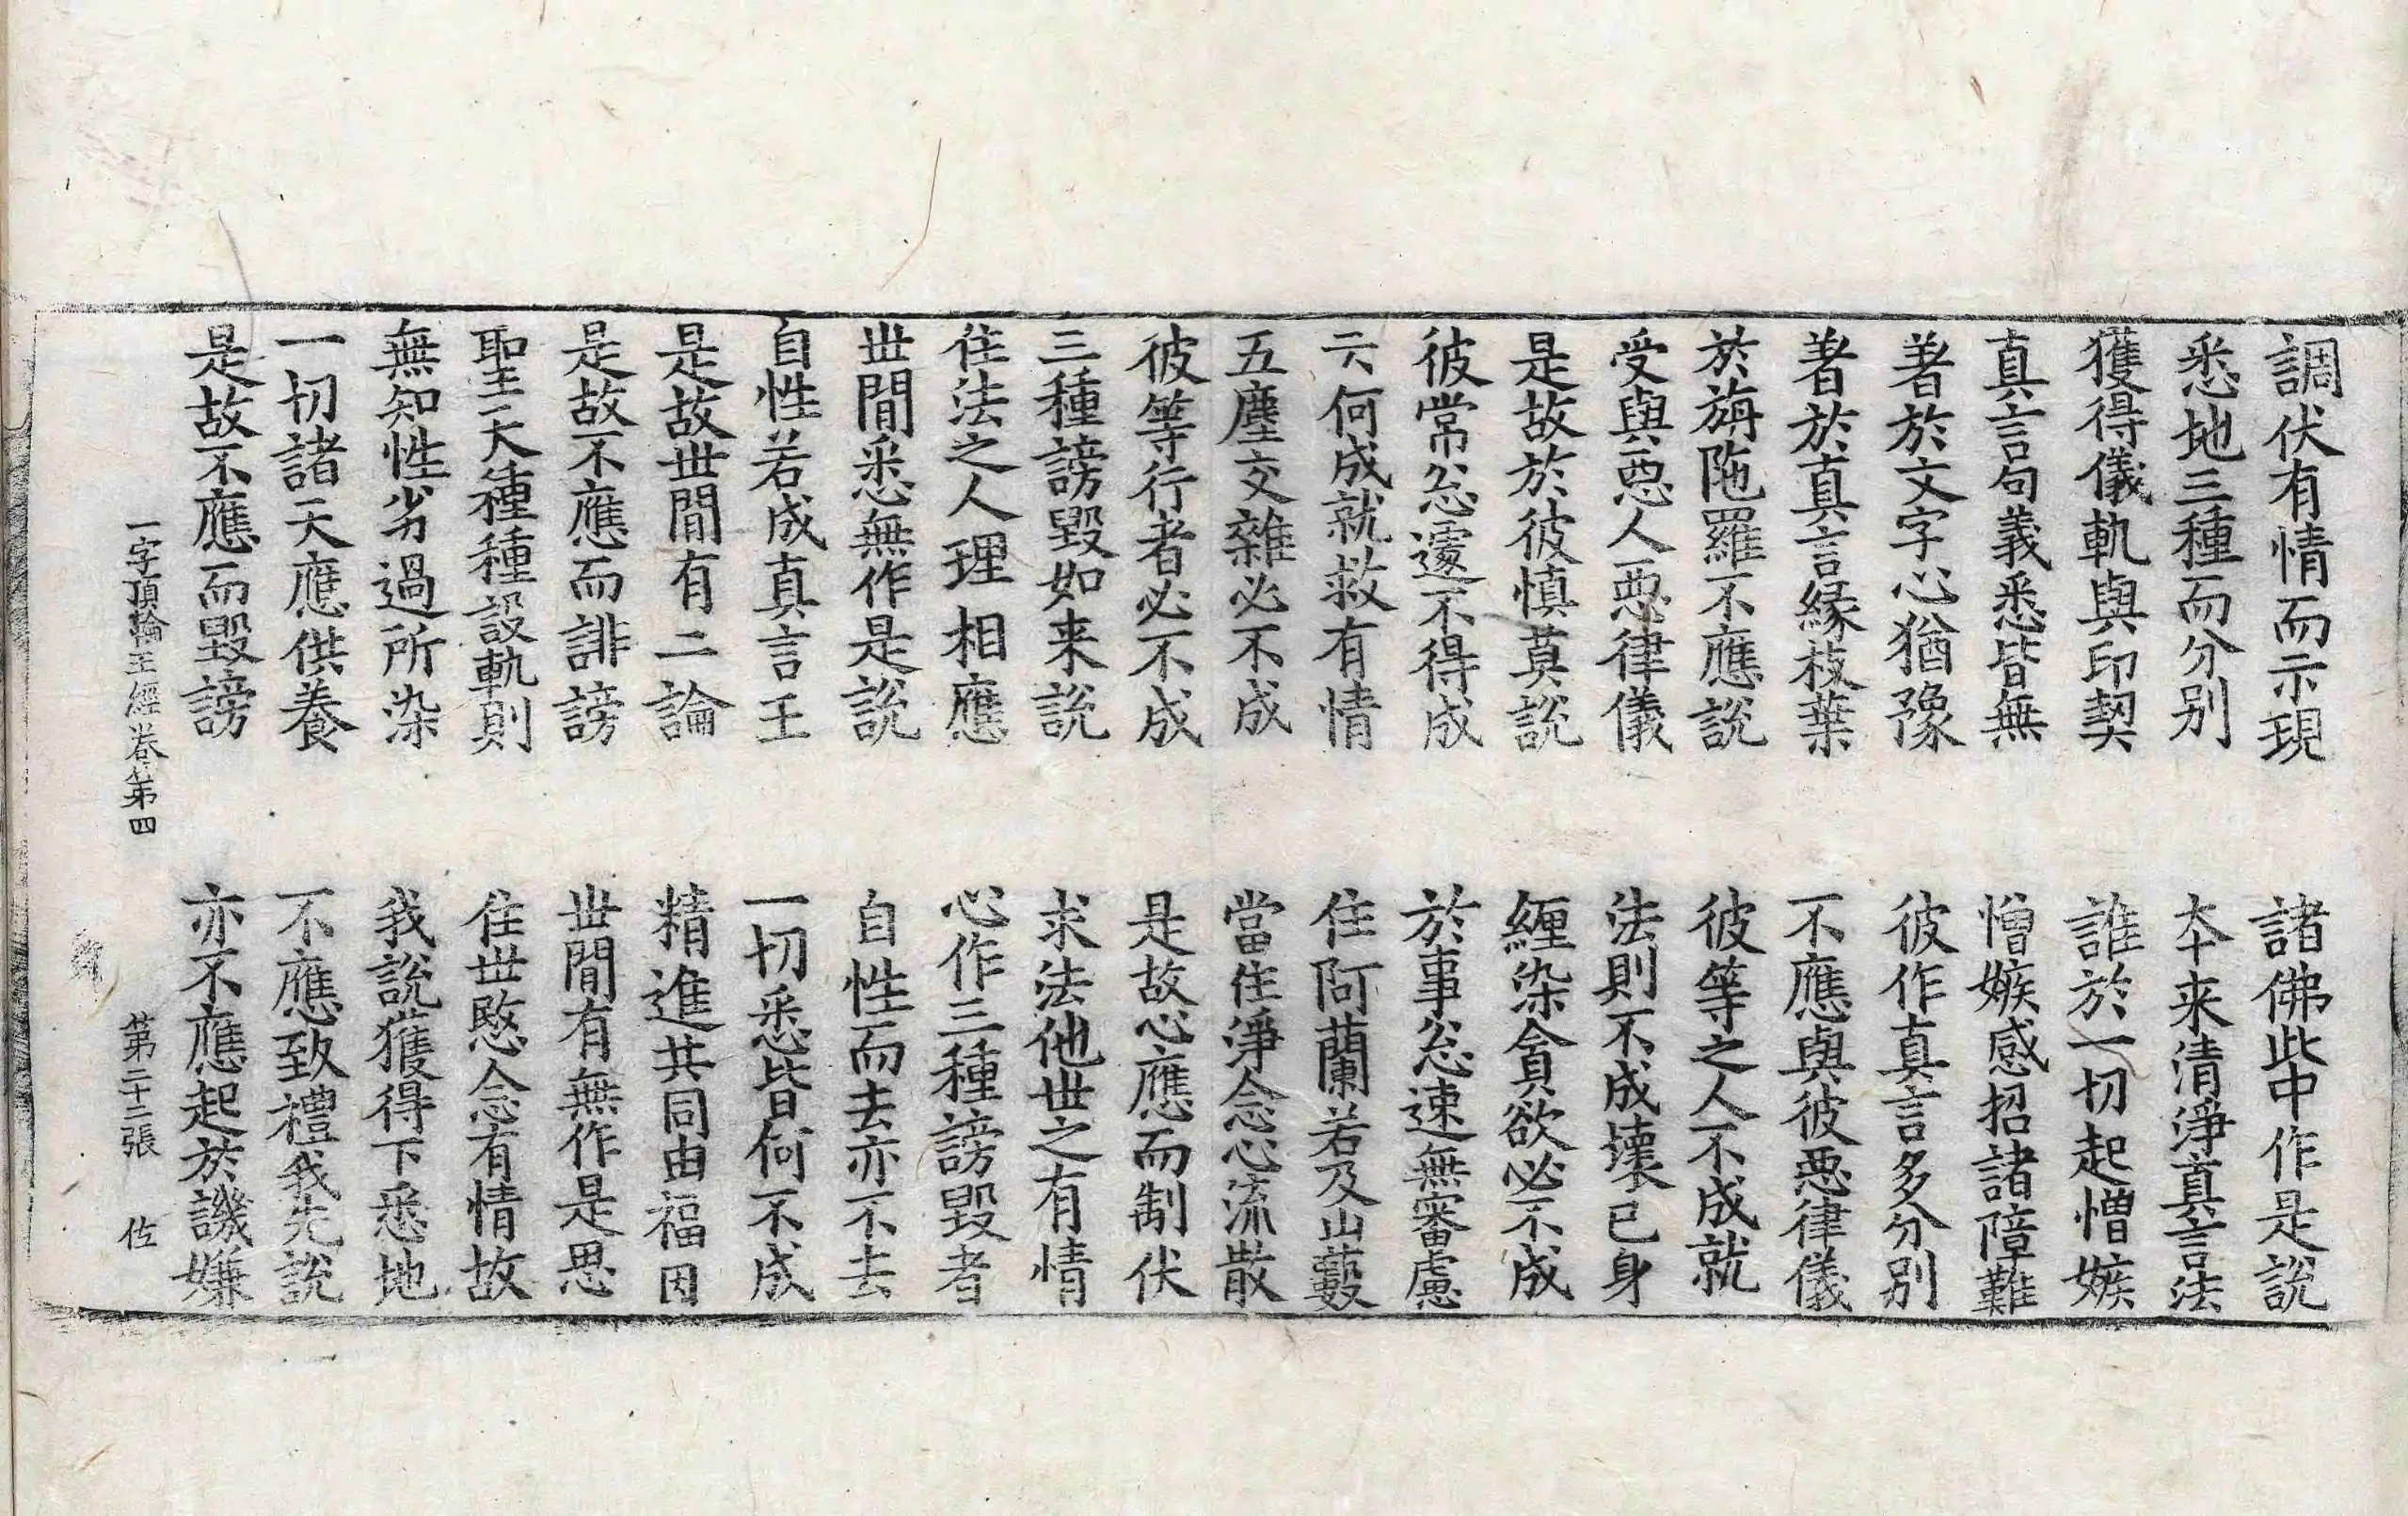 調伏有情而示現　諸佛此中作是說
悉地三種而分別　本来清淨真言法
獲得儀軌與印契　誰於一切起憎嫉
真言句義悉皆無　憎嫉感招諸障難
著於文字心猶豫　彼作真言多分別
著於真言緣枝葉　不應與彼惡律儀
於旃陁羅不應說　彼等之人不成就
受與惡人惡律儀　法則不成壞已身
是故於彼慎莫說　纏染貪欲必不成
彼常忩遽不得成　於事忩速無審慮
云何成就救有情　住阿蘭若及山藪
五塵交雜必不成　當住淨念心流散
彼等行者必不成　是故心應而制伏
三種謗毀如来說　求法他世之有情
住法之人理相應　心作三種謗毀者
世間悉無作是說　自性而去亦不去
自性若成真言王　一切悉皆何不成
是故世間有二論　精進共同由福因
是故不應而誹謗　世間有無作是思
聖天種種設軌則　住世愍念有情故
無知性劣過所染　我說獲得下悉地
一切諸天應供養　不應致禮我先說
是故不應而毀謗　亦不應起於譏嫌
一字頂輪王經卷第四　第二十二張　佐